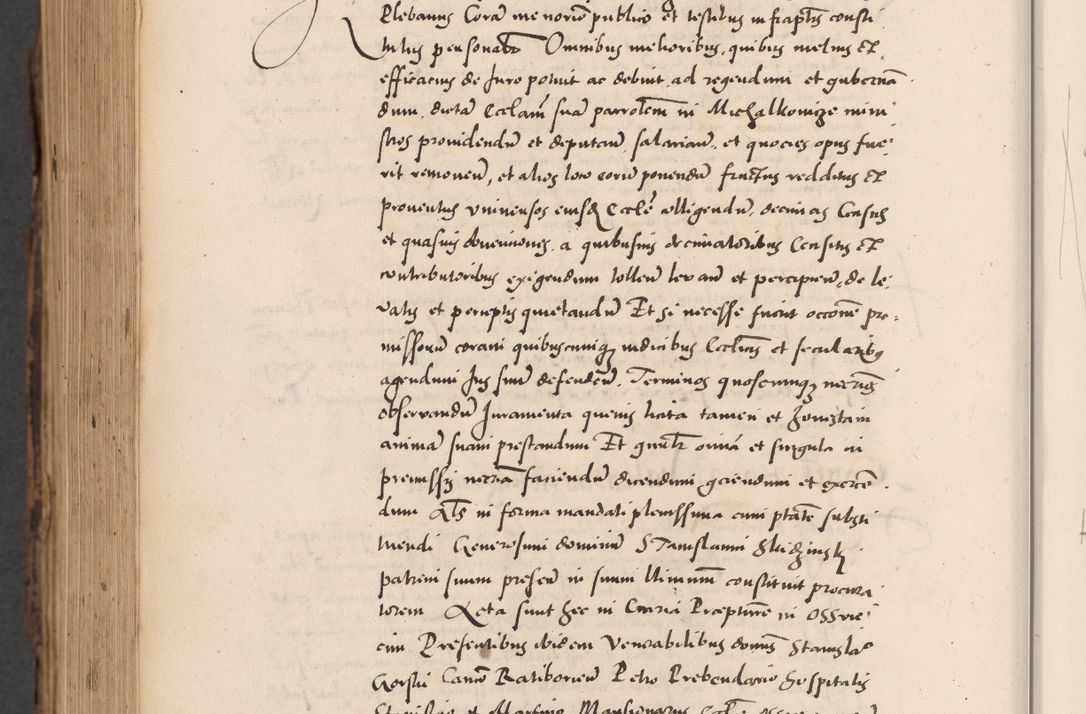 Plebanus Corã me notio publico et testibus infraptis consti
tutus personalr Omnibus melioribus, quibus melius et
efficacius de Jure potuit ac debuit ad regendum et gubernã
dum dictã Ecclam suã parrolem in Michalkowicze mini
stros providendũ et deputañ salariañ, et quocies opus fue
rit removeñ, et alios loco eorũ ponendũ fructus redditus et
proventus universos eiusdẽ Eccle colligendũ, decimas Census
et quasuis obuenciones a quibusuis decimatoribus Censitis et
contributoribus exigendum tolleñ levañ et percipieñ, de le
vatis et perceptis quietandũ Et si necesse fuerit occone pre
missorũ coram quibuscunqz iudicibus Ecclicis et secularibq
agendum Jus suũ defendeñ. Terminos quoscunqz necrios
observandũ Juramenta quevis licita tamen et honestam
animã suam prestandum Et gnalr omia et singula in
premissis necria faciendũ dicendum gerendum et exercẽ
dum Als in forma mandati plenissima cum ptate substi
tuendi Generosum dominũ Stanislaum
patrem suum presen in suum llimum constituit procura
torem Acta sunt hec in Curia Prepture in Osswie
cim Presentibus ibidem Venerabilibus domis Stanislao
Gorski Canco Ratiborien Petro Prebendario hospitalis
et Martino Mansionarys Eccle